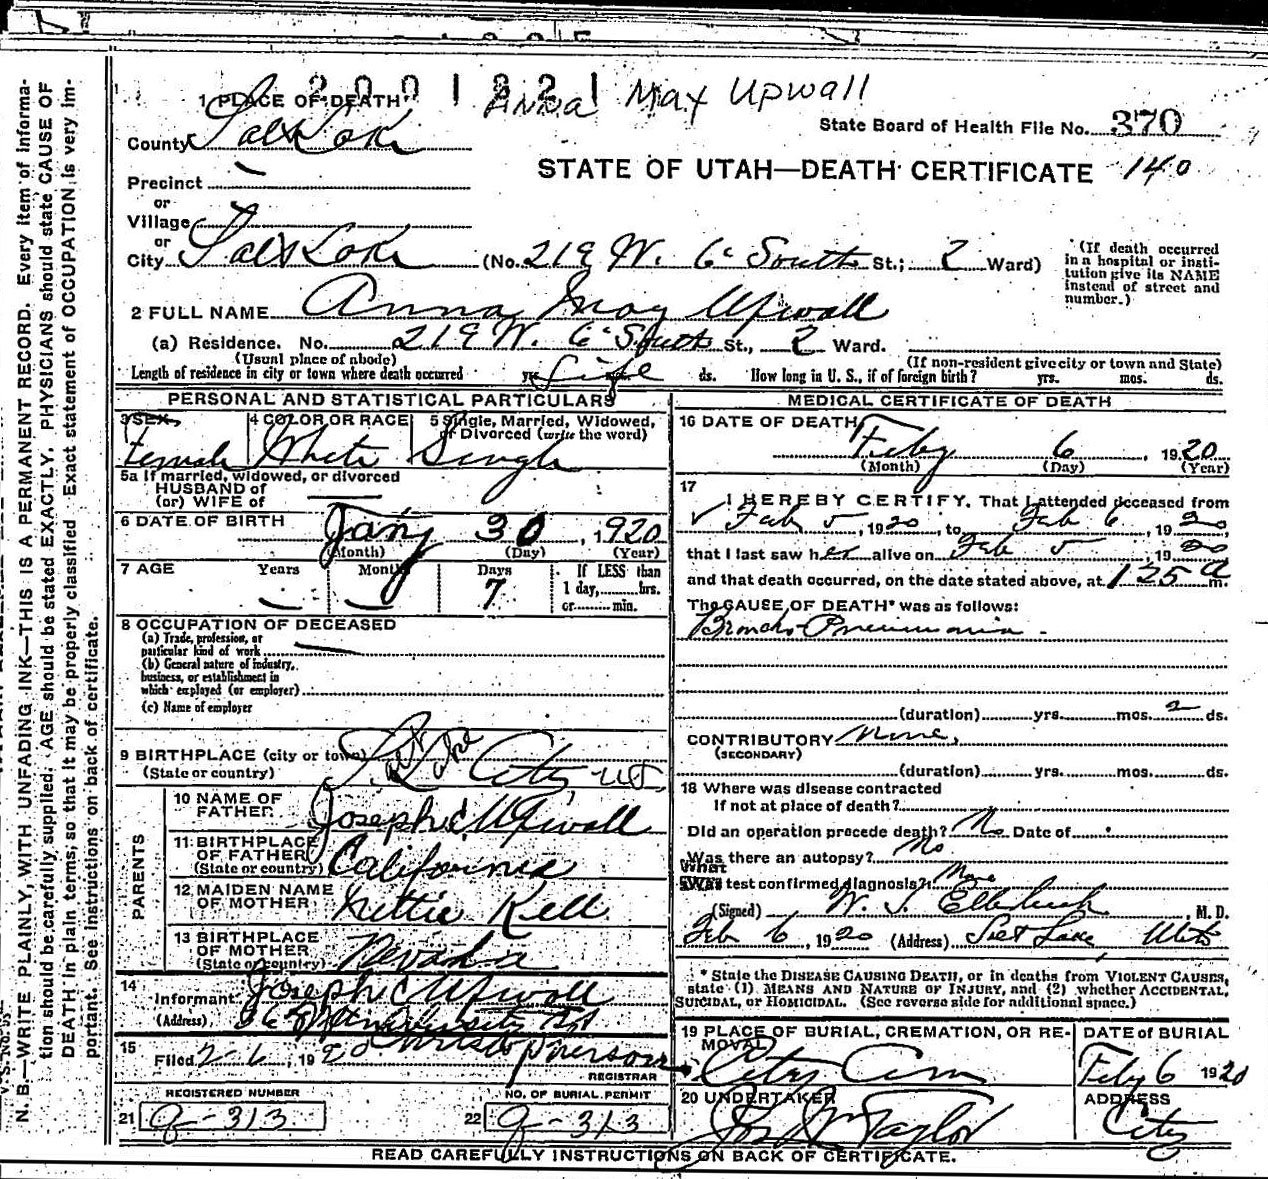 2001221 Anna May Upwall
1 PLACE OF DEATH
State Board of Health File No. 370
County Salt Lake
STATE OF UTAH—DEATH CERTIFICATE 140
Precinct
or
Village
or
City Salt Lake (No. 219 W. 6 South St.; 2 Ward)
(If death occurred in a hospital or institution give its NAME instead of street and number.)
2 FULL NAME Anna May Upwall
(a) Residence. No. 219 W. 6 South St., 2 Ward.
(Usual place of abode) (If non-resident give city or town and State)
Length of residence in city or town where death occurred yrs. Life ds. How long in U. S., if of foreign birth? yrs. mos. ds.
PERSONAL AND STATISTICAL PARTICULARS
3 SEX 4 COLOR OR RACE 5 Single, Married, Widowed, or Divorced (write the word)
Female White Single
5a If married, widowed, or divorced
HUSBAND of
(or) WIFE of
6 DATE OF BIRTH Jany 30, 1920
(Month) (Day) (Year)
7 AGE Years Months Days If LESS than
7 1 day, hrs.
or min.
8 OCCUPATION OF DECEASED
(a) Trade, profession, or
particular kind of work
(b) General nature of industry,
business, or establishment in
which employed (or employer)
(c) Name of employer
9 BIRTHPLACE (city or town) Salt Lake City, Ut
(State or country)
PARENTS
10 NAME OF
FATHER Joseph C Upwall
11 BIRTHPLACE
OF FATHER California
(State or country)
12 MAIDEN NAME
OF MOTHER Nettie Kell
13 BIRTHPLACE
OF MOTHER Nevada
(State or country)
14
Informant Joseph C Upwall
(Address)
15
Filed 2-6, 1920
REGISTRAR
REGISTERED NUMBER NO. OF BURIAL PERMIT
21 313 22 313
MEDICAL CERTIFICATE OF DEATH
16 DATE OF DEATH
Feby 6, 1920
(Month) (Day) (Year)
17
I HEREBY CERTIFY, That I attended deceased from
Feb 5, 1920, to Feb 6, 1920,
that I last saw her alive on Feb 5, 1920
and that death occurred, on the date stated above, at 1 25 a m.
The CAUSE OF DEATH* was as follows:
Broncho-Pneumonia.
(duration) yrs. mos. 2 ds.
CONTRIBUTORY None,
(SECONDARY)
(duration) yrs. mos. ds.
18 Where was disease contracted
if not at place of death?
Did an operation precede death? No Date of
Was there an autopsy? No
What
test confirmed diagnosis? None
(Signed) W. J. , M. D.
Feb 6, 1920 (Address) Salt Lake, Utah
* State the DISEASE CAUSING DEATH, or in deaths from VIOLENT CAUSES,
state (1) MEANS AND NATURE OF INJURY, and (2) whether ACCIDENTAL,
SUICIDAL, or HOMICIDAL. (See reverse side for additional space.)
19 PLACE OF BURIAL, CREMATION, OR REMOVAL DATE of BURIAL
City Cem Feby 6 1920
20 UNDERTAKER ADDRESS
Taylor City
READ CAREFULLY INSTRUCTIONS ON BACK OF CERTIFICATE.
N. B.—WRITE PLAINLY, WITH UNFADING INK—THIS IS A PERMANENT RECORD. Every item of information should be carefully supplied. AGE should be stated EXACTLY. PHYSICIANS should state CAUSE OF
DEATH in plain terms, so that it may be properly classified. Exact statement of OCCUPATION is very important. See instructions on back of certificate.